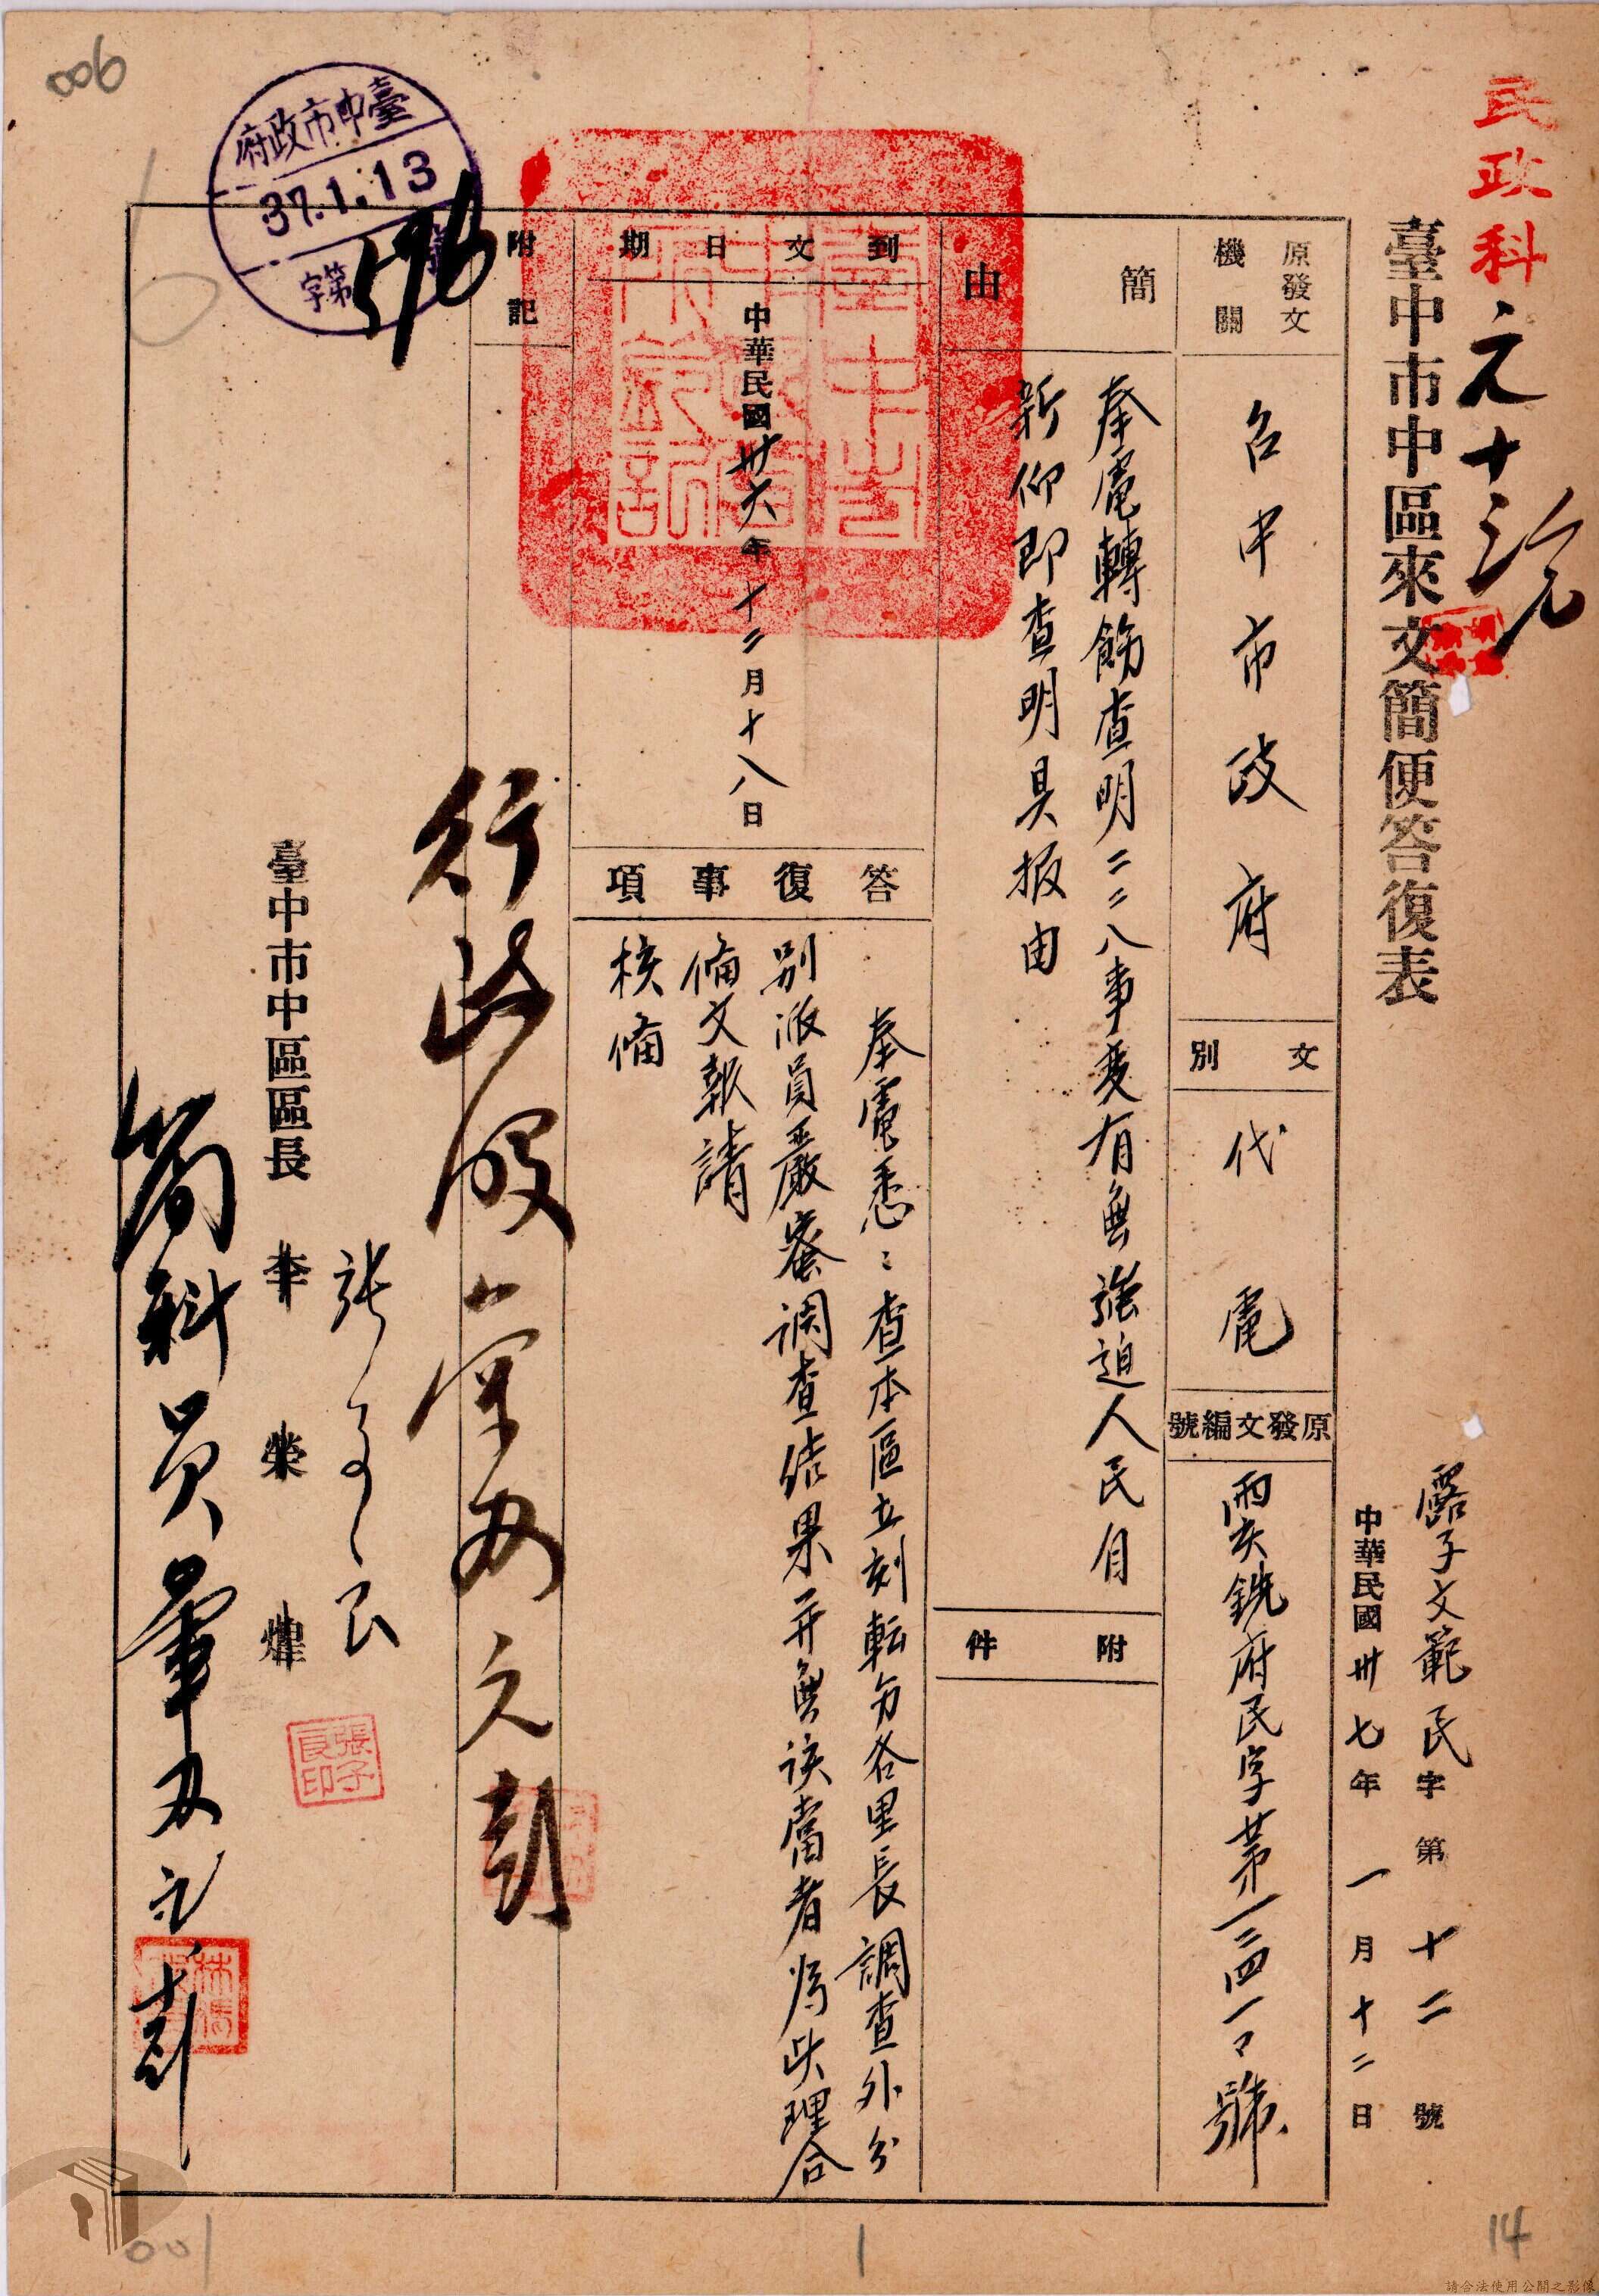 民政科
元十
臺中市中區來文簡便答復表
露子文範民字第十二號
中華民國卅七年一月十二日
原發文機關
台中市政府
文別
代電
原發文編號
府民字第一三四一〇號
簡由
奉電轉飭查明二二八事変有無強迫人民自
新仰即查明具报由
附件
到文日期
中華民國卅六年十二月十八日
答復事項
奉電悉:查本區立刻転勹各里長調查外分
別派員嚴密调查结果并無该當者為此理合
備文報請
核備
附記
臺中市政府
37.1.13
字第576號
臺中市中區區長
李榮煒
張子良
張子良印
科員
006
001
1
14
請合法使用公開之影像